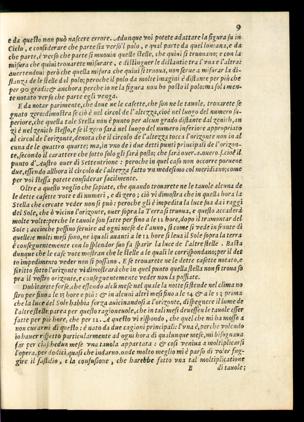 9
e da questo non può nascere errore. Adunque voi potete adattar la figura su in
Cielo, e considerare che parte sia verso'l polo, e qual parte da quel lontana, e da
che parte, e verso che parte si muouin quelle Stelle, che quiui si truouano; e con la
misura che quiui trouarete misurare, e distinguer le distantie tra l'vna e l'altra:
auertendoui però che quella misura che quiui si truoua, non serue a misurar la di-
stanza de le stelle dal polo; perochè il polo da molte imagini è distante per più che
per 90 gradi: & anchora perche io ne la figura non ho posto il polo, ma sol amen-
te notato verso che parte egli venga.
E da notar parimente, che doue ne le casette, che son ne le tauole, trouarete se
gnato zero; dimostra se ciò è nel circol de l'altezza, cioè nel luogo del numero su-
periore, che quella tale Stella non è punto per alcun grado distante dal zenith, an
zi è nel zenith stesso, e se il zero sarà nel luogo del numero inferiore appropriato
al circol de l'orizonte, denota che il circolo de l'altezza tocca l'orizonte non in al
cuna de le quattro quarte; ma, in vno de i due detti punti principali de l'orizon-
te, secondo il carattere che sotto solo gli sarà posto; che sarà ouero
punto d'ostro ouer di Settentrione: perochè in quel caso non occorre ponerne
due, essendo allhora il circolo de l'altezza fatto vn medesimo col meridiano; come
per voi stessa potete considerar facilmente.
Oltre a questo voglio che sapiate, che quando trouarete ne le tauole alcuna de
le dette casette vote di numeri, e di zero; ciò vi dimostra che in quella hora le
Stella che cercate veder non si può: perochè gli è impedita la luce sua da i raggi
del Sole, che è vicino l'orizonte, ouer sopra la Terra si truoua, e questo accaderà
molte volte; perche le tauole son fatte per sino a le 12 hore, dopo il tramontar del
Sole: accioche possino seruire ad ogni mese de l'anno, sì come si vede in tauola di
quelle che molti mesi sono, ne i quali auanti a le 12 hore si leua il Sole sopra la terra
e conseguentemente con lo splendor suo fa sparir la luce de l'altre stelle. Basta
dunque che le casette vote mostran che le stelle a le quali le corrispondono; per il det
to impedimento veder non si possano. E se trouarete ne le dette casette notato, e
scritto sotto l'orizonte vi dimostrarà che in quel punto quella stella non si truoua so
pra il vostro orizonte, e conseguentemente veder non la possiate.
Dubitarete forse, che essendo alcun mese nel quale la notte si stende nel clima no
stro per sino a le 15 hore più: & in alcuni altri mesi sino a le 14 & a le 13 prima
che la luce del Sole habbia forza auicinandosi a l'orizonte, dispegnere il lume de
l'altre stelle. parea per questo ragioneuole, che in tali mesi douessen le tauole esser
fatte per più hore, che per 12. A questo vi rispondo, che quel che mi ha mosso a
non curarmi di questo: è nato da due cagioni principali: l'vna è, perche volendo
io hauer rispetto particularmente ad ogni hora di qualunque mese, mi bisognaua
far per ciaschedun mese vna tauola appartata: & così veniua a moltiplicarsi
l'opera, per dodici quasi che indarno. onde molto meglio mi è parso di voler fug-
gire il fastidio, e la confusione, che harebbe fatto vna tal moltiplicatione
B di tauole;